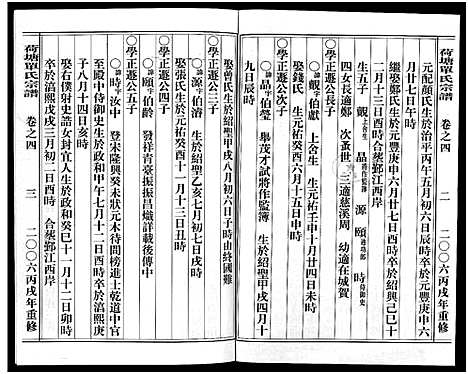 荷塘單氏宗譜 卷之四 三 二○○六丙戌年重修
元配顏氏生於治平丙午五月初六日辰時卒於元豐庚申六
月廿七日午時
繼娶鄭氏生於元豐庚申六月廿七日酉時卒於紹興己巳
月十三日酉時合葬鄞江西岸
生五子 覿上舍生 晶監作監簿 源 頤 時侍御史
四女長適鄭 次蚤世 三適慈溪周 幼適在城賀
○學正遯公長子
諱覿字伯獻 上舍生 生於元祐壬申十月廿四日未時
娶錢氏 生於元祐癸酉六月十五日申時
○學正遯公次子
諱晶字伯 舉茂才試將作監簿 生於紹聖甲戌四月十
九日辰時
娶曾氏生於紹聖甲戌八月初六日子時由終國難
○學正遯公三子
諱源字伯濬 生於紹聖乙亥七月初七日戌時
娶張氏生於元祐癸酉十一月十三日戌時
○學正遯公四子
諱頤字伯齡 祥符青臺振振昌熾詳載後傳中
○學正遯公五子
諱時字汝中 登宋隆興癸未狀元木待問榜進士乾道中官
至殿中侍御史生於政和甲午七月十二日酉時卒於淳熙庚
子八月十四日亥時
娶右僕射史誥女封宜人生於政和癸巳十一月十二日卯時
卒於淳熙戊戌三月初二日酉時 合葬鄞江西岸
荷塘單氏宗譜 卷之四 三 二○○六丙戌年重修